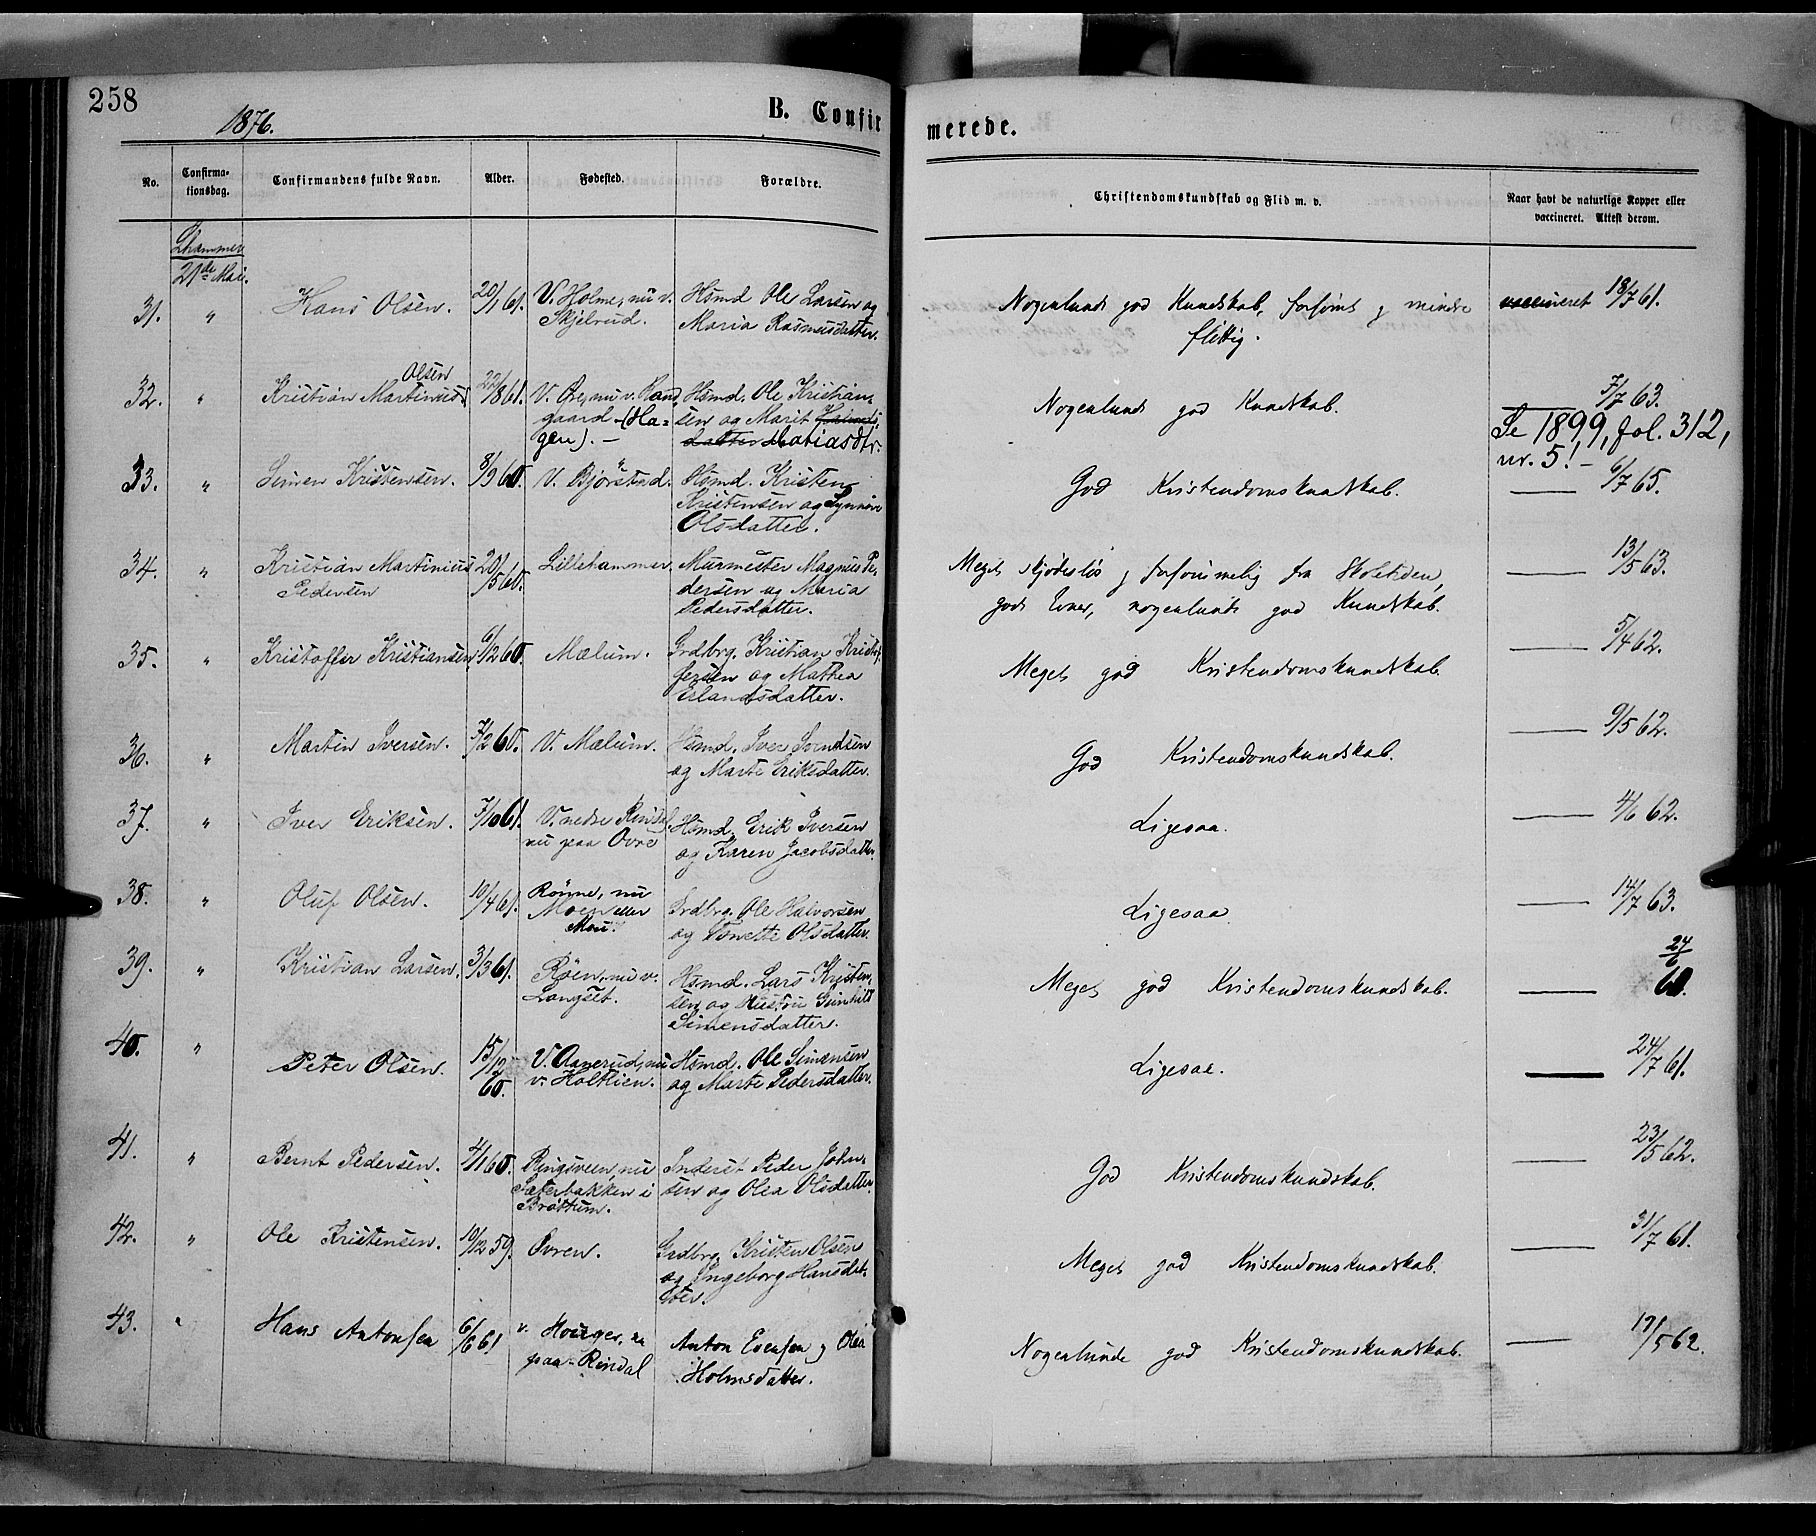 258
1876.
B. Confirmerede.
No.
Confirmationsdag.
Confirmandens fulde Navn.
Alder.
Fødested.
Forældre.
Christendomskundskab og Flid m. v.
Naar havt de naturlige Kopper eller
vaccineret. Attest derom.
Lhammer
21de Mai.
31. " Hans Olsen. 20/1 61. V. Holme, nu v. Hsmd Ole Larsen og Nogenlunde god Kundskab, forsømt og mindre vaccineret 18/7 61.
Skjelrud. Maria Rasmusdatter. flittig.
Olsen
32. " Kristian Martinius 22/8 61. V. Øre, nu v. Haugaard Hsmd. Ole Kristian- Nogenlunde god Kundskab. 7/7 63.
(Ha= sen og Marit
gen). — Matiasdtr. Se 1899, fol. 312,
nr. 5! —
33. " Simen Kristensen. 8/9 60. V. Bjørstad. Hsmd. Kristen God Kristendomskundskab. — 6/7 65.
Kristensen og Synnøve
Olsdatter.
34. " Kristian Martinius 20/5 60. Lillehammer. Murmester Magnus Pe- Meget skjødesløs og forsømmelig fra Skoletiden, — 13/5 63.
Pedersen dersen og Maria gode Evner, nogenlunde god Kundskab.
Pedersdatter.
35. " Kristoffer Kristiansen. 6/12 60. Mælum. Grdbrg. Kristian Kristof- Meget god Kristendomskundskab. — 5/4 62.
fersen og Mathea
Erlandsdatter.
36. " Martin Iversen. 7/2 60. V. Mælum. Hsmd. Iver Svendsen God Kristendomskundskab. — 9/5 62.
og Marte Eriksdatter.
37. " Iver Eriksen. 7/10 61. V. nedre Rindal, Hsmd. Erik Iversen Ligesaa. — 4/6 62.
nu paa Ovre og Karen Jacobsdatter.
38. " Oluf Olsen. 10/4 61. Rønne, nu Grdbrg. Ole Halvorsen Ligesaa. — 14/7 63.
Moen eller og Tonette Olsdatter.
Mou.
39. " Kristian Larsen. 3/3 61. Røen, nu v. Hsmd. Lars Kristen- Meget god Kristendomskundskab. — 24/6 61.
Langset. sen og Hustru Gunhild
Simensdatter.
40. " Peter Olsen. 15/12 60. V. Aanerud, nu Hsmd. Ole Simensen Ligesaa. — 24/7 61.
v. Holtlien. og Marte Pedersdatter.
41. " Bernt Pedersen. 4/1 60. Ringsveen, nu Inderst Peder John- God Kristendomskundskab. — 23/5 62.
Sæterbakken i sen og Olea Olsdatter.
Brøttum.
42. " Ole Kristensen. 10/12 59. Ovren. Grdbrg. Kristen Olsen Meget god Kristendomskundskab. — 31/7 61.
og Ingeborg Hansdat-
ter.
43. " Hans Antonsen 6/6 61 v. Houger, nu Anton Evensen og Olea Nogenlunde god Kristendomskundskab. — 19/5 62.
paa Rindal Holmsdatter.